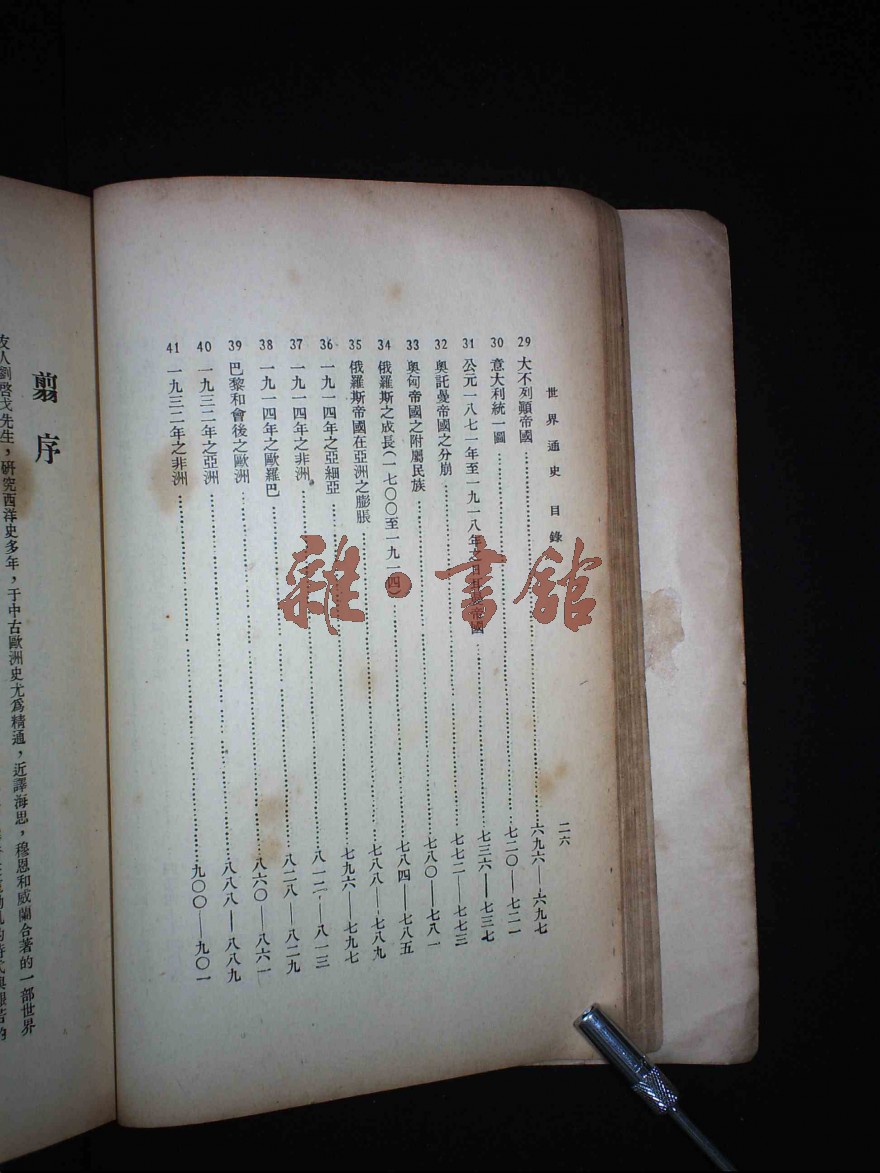 世界通史 目錄 二六
29 大不列顚帝國……六九六—六九七
30 意大利統一圖……七二〇—七二一
31 公元一八七一年至一九一八年之日耳曼帝國……七三六—七三七
32 奧託曼帝國之分崩……七七二—七七三
33 奧匈帝國之附屬民族……七八〇—七八一
34 俄羅斯之成長(一七〇〇至一九一四)……七八四—七八五
35 俄羅斯帝國在亞洲之膨脹……七八八—七八九
36 一九一四年之亞細亞……七九六—七九七
37 一九一四年之非洲……八一二—八一三
38 一九一四年之歐羅巴……八二八—八二九
39 巴黎和會後之歐洲……八六〇—八六一
40 一九三二年之亞洲……八八八—八八九
41 一九三二年之非洲……九〇〇—九〇一
雜·書館
翦序
友人劉啓戈先生，研究西洋史多年，于中古歐洲史尤爲精通，近譯海思，穆恩和威蘭合著的一部世界